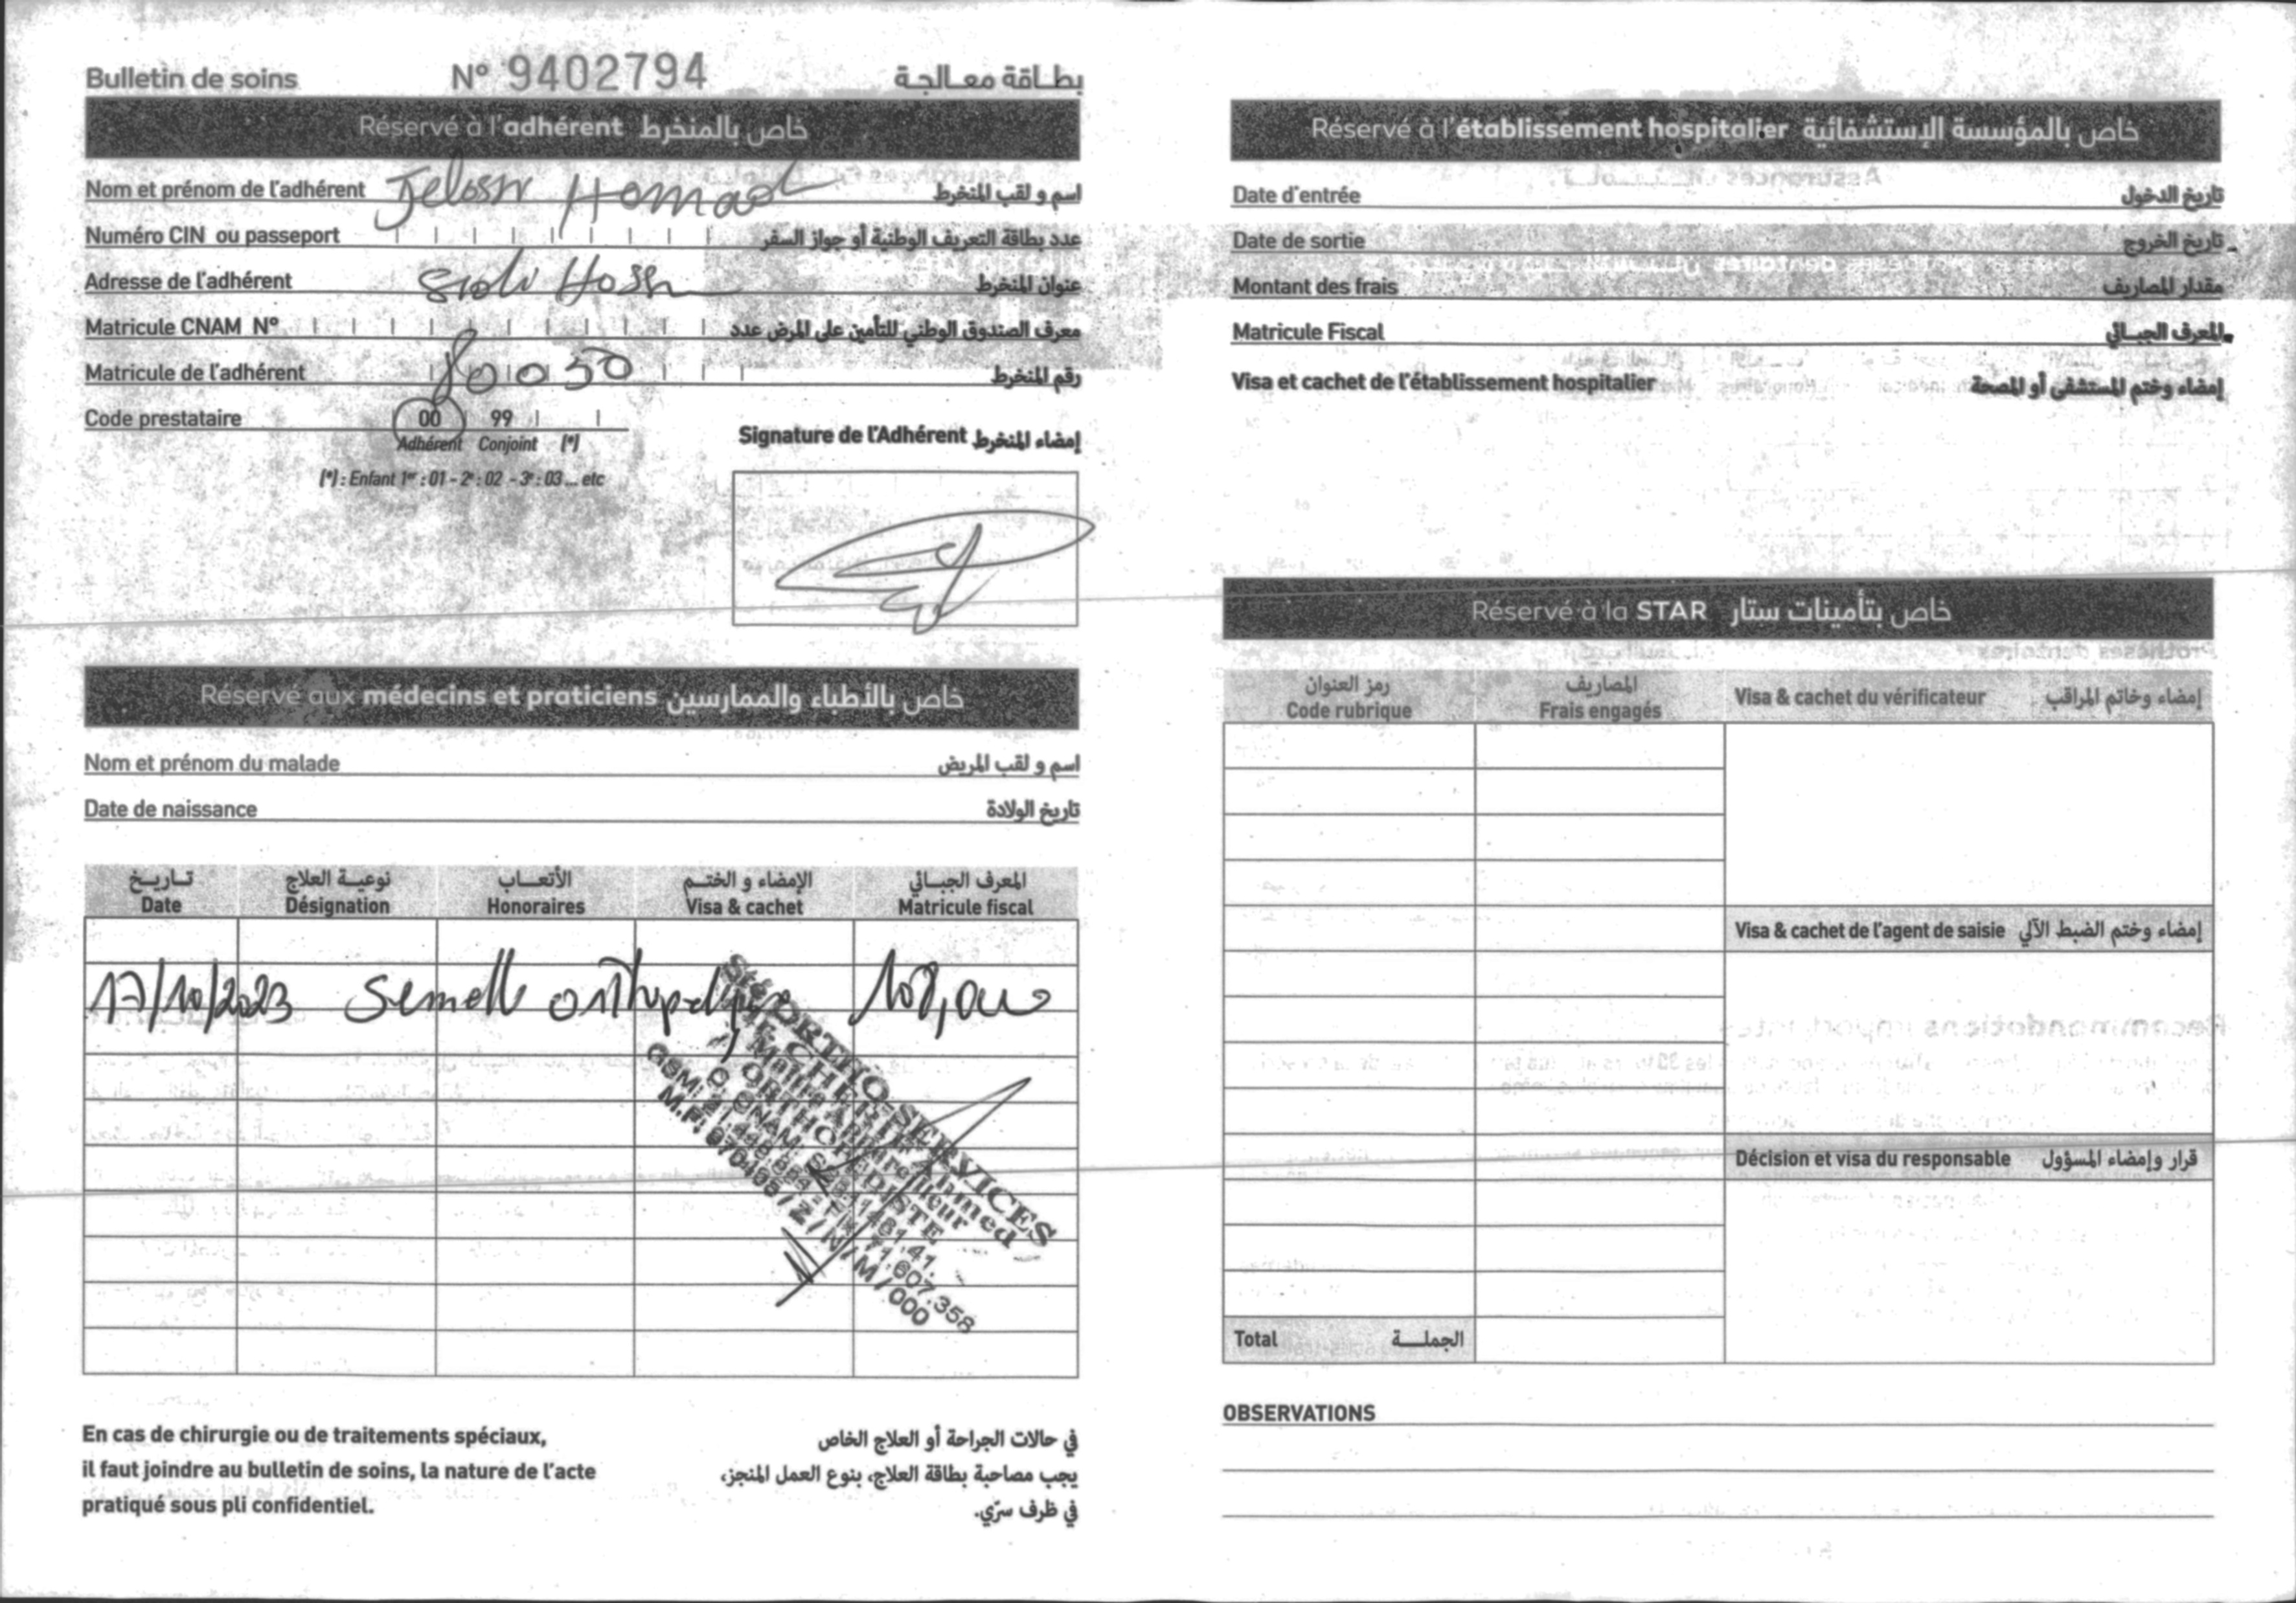 Bulletin de soins N° 9402794 بطاقة معالجة
Réservé à l'adhérent خاص بالمنخرط
Nom et prénom de l'adhérent اسم و لقب المنخرط
Numéro CIN ou passeport عدد بطاقة التعريف الوطنية أو جواز السفر
Adresse de l'adhérent عنوان المنخرط
Matricule CNAM N° معرف الصندوق الوطني للتأمين على المرض عدد
Matricule de l'adhérent 80050 رقم المنخرط
Code prestataire 00 99
Adhérent Conjoint (*)
(*) : Enfant 1er : 01 - 2e : 02 - 3e : 03 ... etc
Signature de l'Adhérent إمضاء المنخرط
Réservé aux médecins et praticiens خاص بالأطباء والممارسين
Nom et prénom du malade اسم و لقب المريض
Date de naissance تاريخ الولادة
تاريخ نوعية العلاج الأتعاب الإمضاء و الختم المعرف الجبائي
Date Désignation Honoraires Visa & cachet Matricule fiscal
17/10/2023 Semelle 108,000
Sté ORTHO-SERVICES
Ahmed
ORTHOPEDISTE
En cas de chirurgie ou de traitements spéciaux,
il faut joindre au bulletin de soins, la nature de l'acte
pratiqué sous pli confidentiel.
في حالات الجراحة أو العلاج الخاص
يجب مصاحبة بطاقة العلاج، بنوع العمل المنجز،
في ظرف سرّي.
Réservé à l'établissement hospitalier خاص بالمؤسسة الإستشفائية
Date d'entrée تاريخ الدخول
Date de sortie تاريخ الخروج
Montant des frais مقدار المصاريف
Matricule Fiscal المعرف الجبائي
Visa et cachet de l'établissement hospitalier إمضاء وختم المستشفى أو المصحة
Réservé à la STAR خاص بتأمينات ستار
رمز العنوان المصاريف
Code rubrique Frais engagés Visa & cachet du vérificateur إمضاء وخاتم المراقب
Visa & cachet de l'agent de saisie إمضاء وختم الضبط الآلي
Décision et visa du responsable قرار وإمضاء المسؤول
Total الجملة
OBSERVATIONS